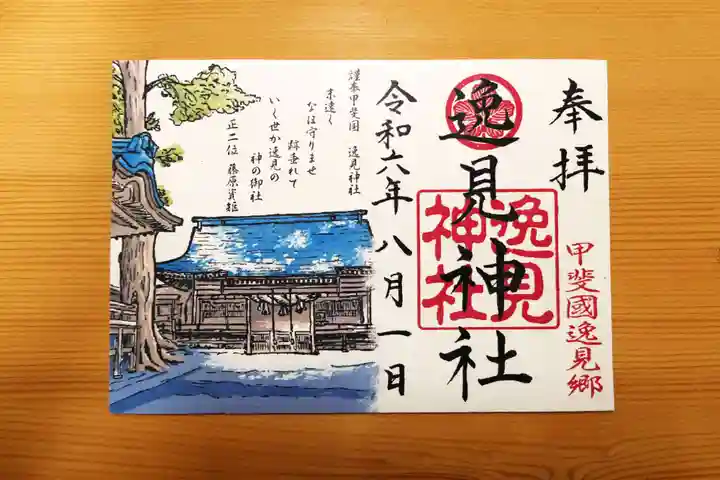 奉拝
甲斐國逸見郷
逸見神社
逸見
神社
令和六年八月一日
謹奉甲斐国 逸見神社
末遠く
なほ守りませ
跡垂れて
いく世か逸見の
神の御社
正二位 藤原資